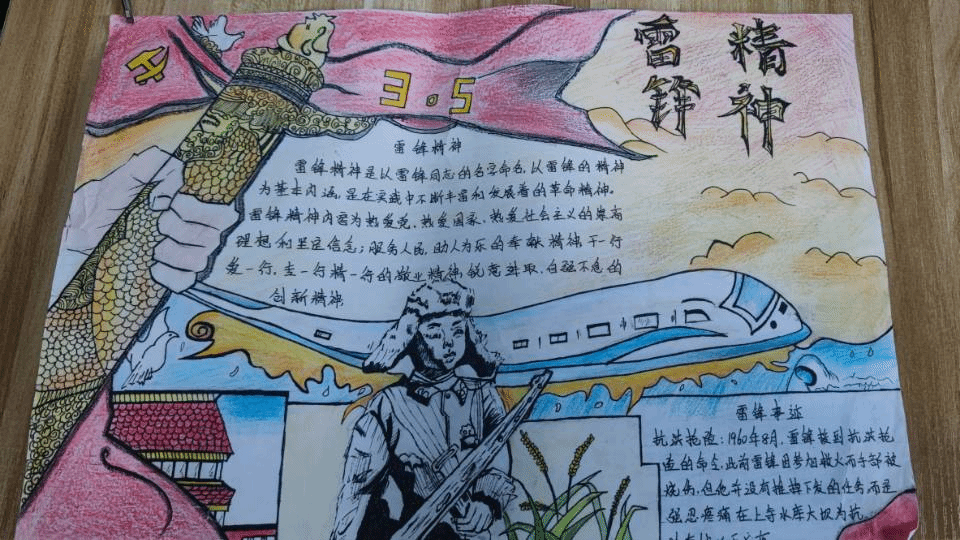 雷锋
精神
3.5
雷锋精神
雷锋精神是以雷锋同志的名字命名,以雷锋的精神
为基本内涵,是在实践中不断丰富和发展着的革命精神。
雷锋精神内容为热爱党、热爱国家、热爱社会主义的崇高
理想和坚定信念;服务人民、助人为乐的奉献精神;干一行
爱一行、专一行精一行的敬业精神;锐意进取、自强不息的
创新精神
雷锋事迹
抗洪抢险:1960年8月,雷锋接到抗洪抢
险的命令,此前雷锋因参加救火而手部被
烧伤,但他并没有推掉下发的任务而是
强忍疼痛在上寺水库大坝为抗